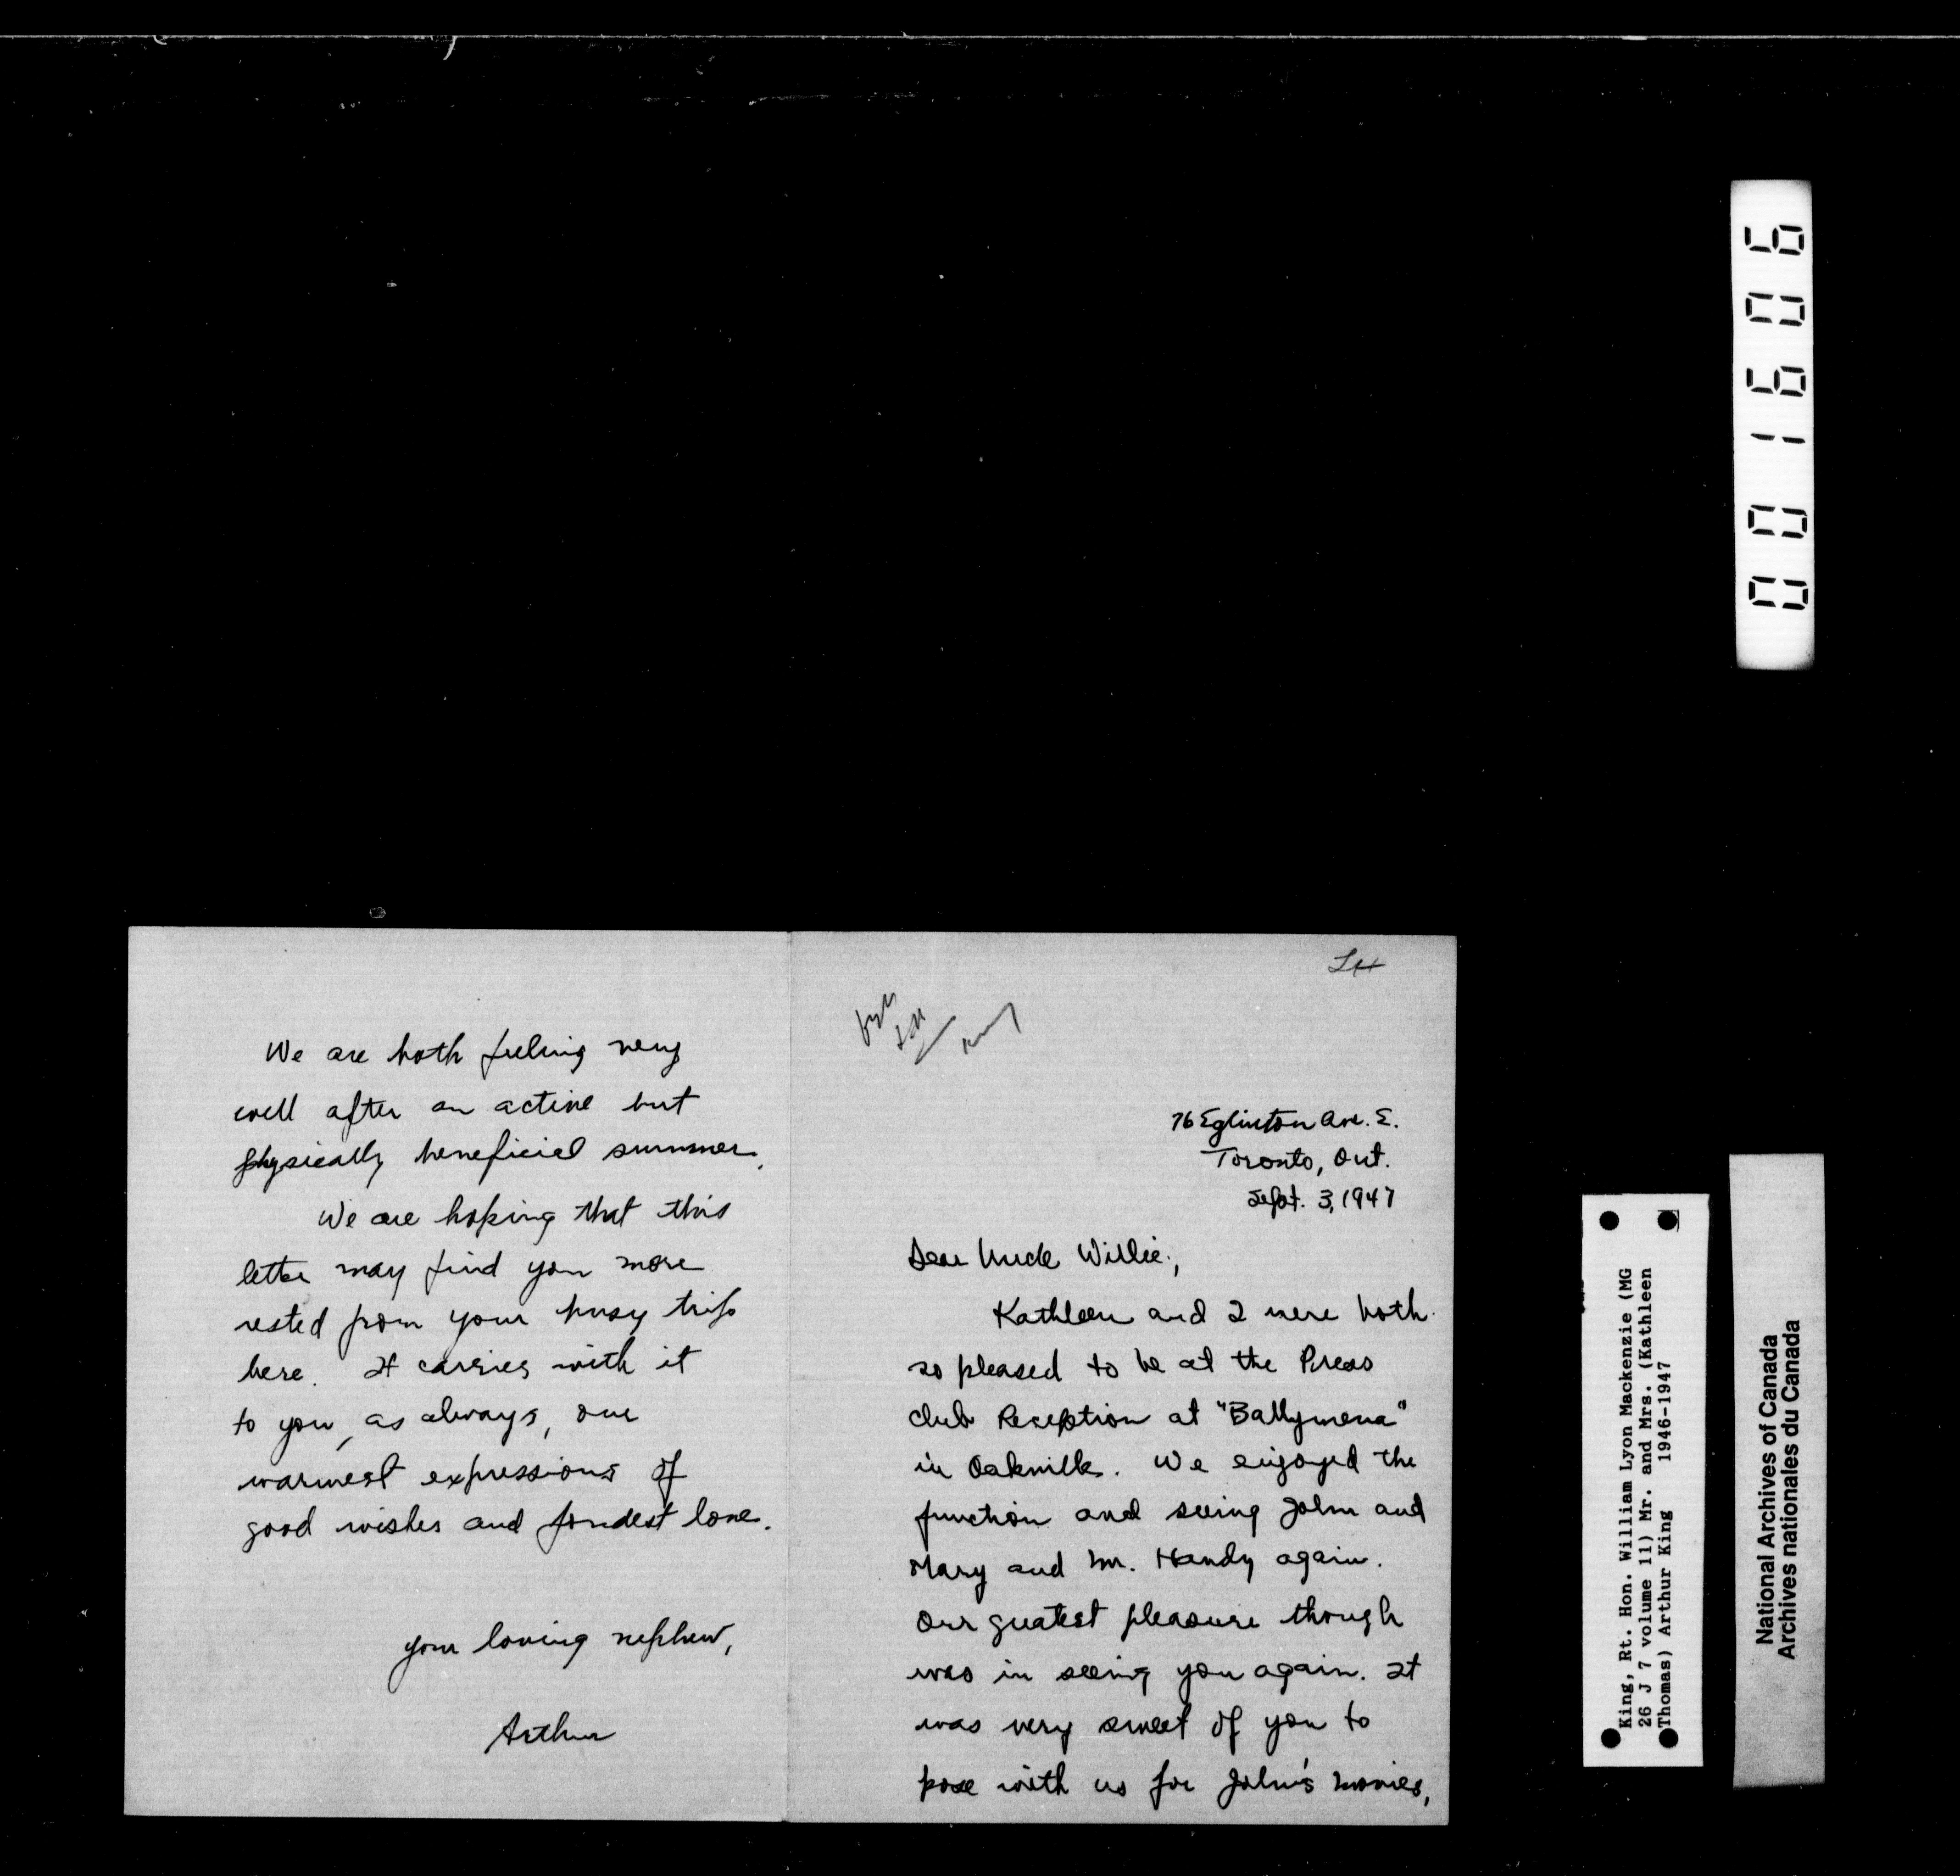 We are both feeling very
well after an active but
physically beneficial summer.
We are hoping that this
letter may find you more
rested from your busy trip
here. It carries with it
to you, as always, our
warmest expressions of
good wishes and fondest love.
your loving nephew,
Arthur
76 Eglinton Ave. E.
Toronto, Ont.
Sept. 3, 1947
Dear Uncle Willie,
Kathleen and I were both
so pleased to be at the Press
Club Reception at "Ballymena"
in Oakville. We enjoyed the
function and seeing John and
Mary and Mr. Handy again.
Our greatest pleasure though
was in seeing you again. It
was very sweet of you to
pose with us for John's movies,
001606
King, Rt. Hon. William Lyon Mackenzie (MG
26 J 7 volume 11) Mr. and Mrs. (Kathleen
Thomas) Arthur King 1946-1947
National Archives of Canada
Archives nationales du Canada